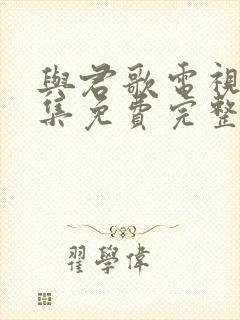 與君歌電視
集免費完整
翟學偉